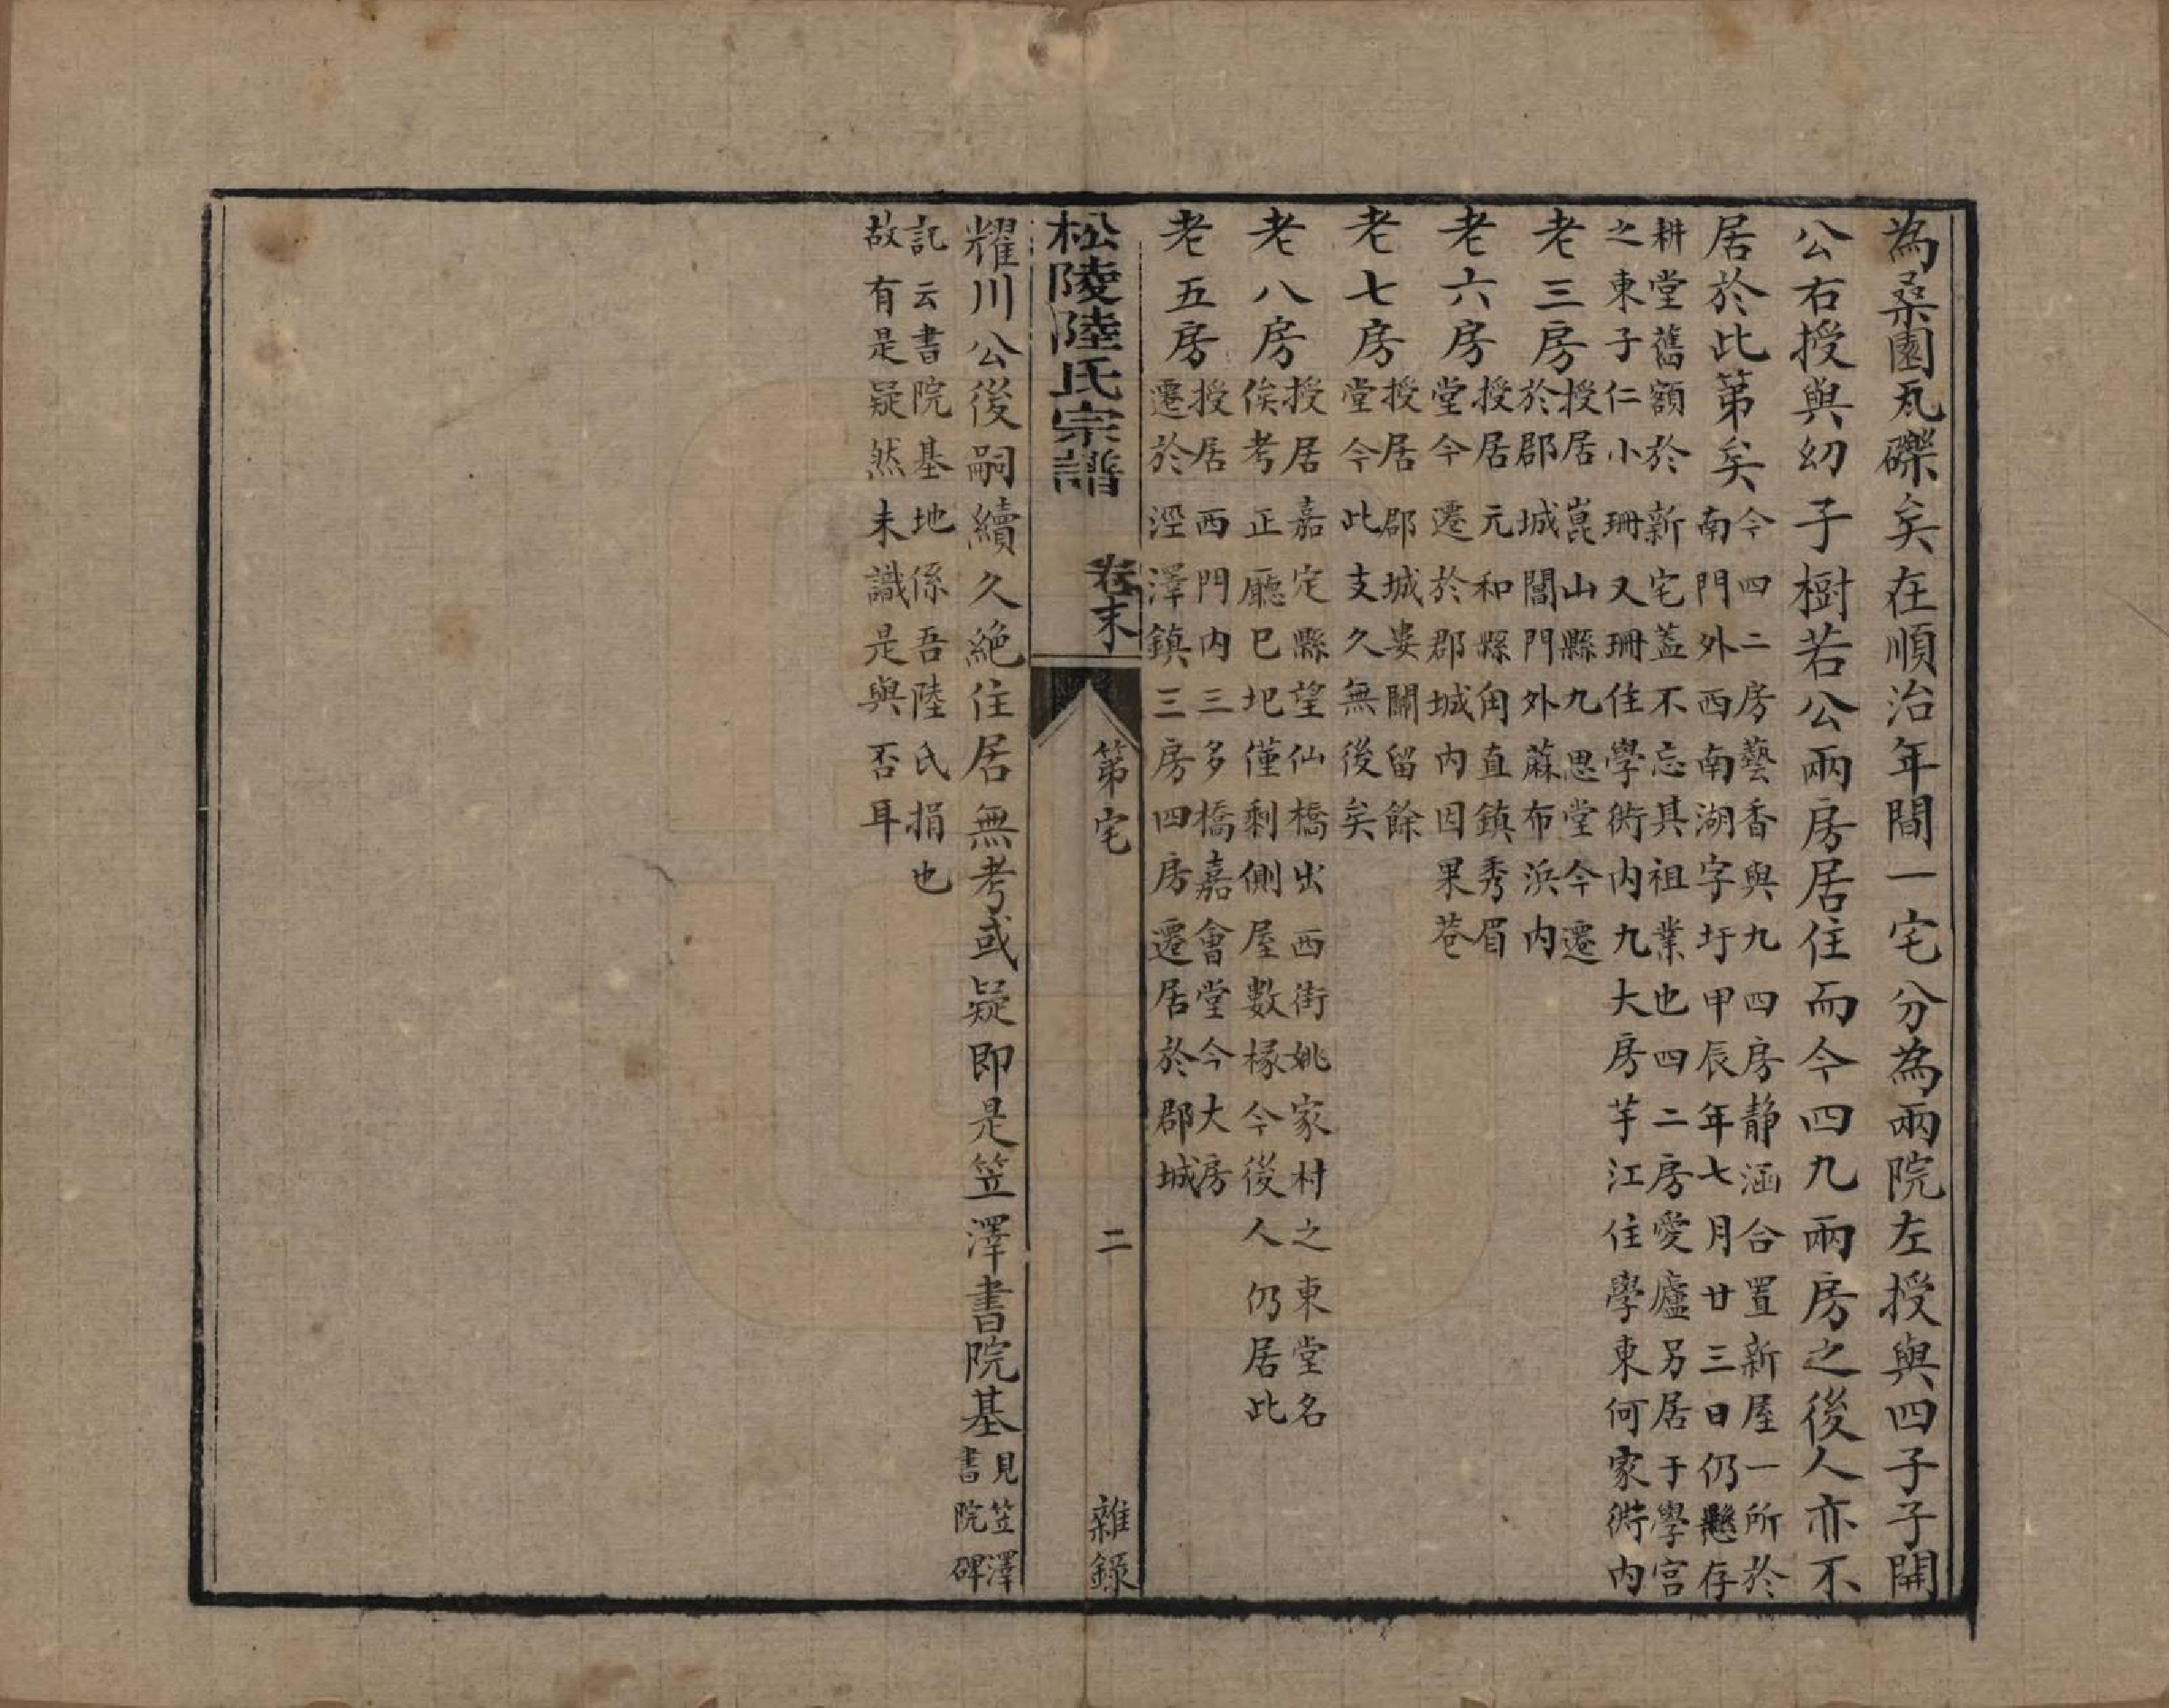 為桑園瓦礫矣在順治年間一宅分為兩院左授與四子子開
公右授與幼子樹若公兩房居住而今四九兩房之後人亦不
居於此第矣
今四二房藝香與九四房靜涵合置新屋一所於
南門外西南湖字圩甲辰年七月廿三日仍懸存
耕堂舊額於新宅蓋不忘其祖業也四二房愛廬另居于學宮
之東子仁小珊又珊住學衖內九大房芋江住學東何家衖內
老三房
授居崑山縣九思堂今遷
於郡城閶門外蔴布浜內
老六房
授居元和縣甪直鎮秀眉
堂今遷於郡城內因果巷
老七房
授居郡城婁關留餘
堂今此支久無後矣
老八房
授居嘉定縣望仙橋出西街姚家村之東堂名
俟考正廳已圯僅剩側屋數椽今後人仍居此
老五房
授居西門內三多橋嘉會堂今大房
遷於涇澤鎮三房四房遷居於郡城
松陵陸氏宗譜 卷末 第宅 二 雜錄
耀川公後嗣續久絕住居無考或疑即是笠澤書院基
見笠澤
書院碑
記云書院基地係吾陸氏捐也
故有是疑然未識是與否耳